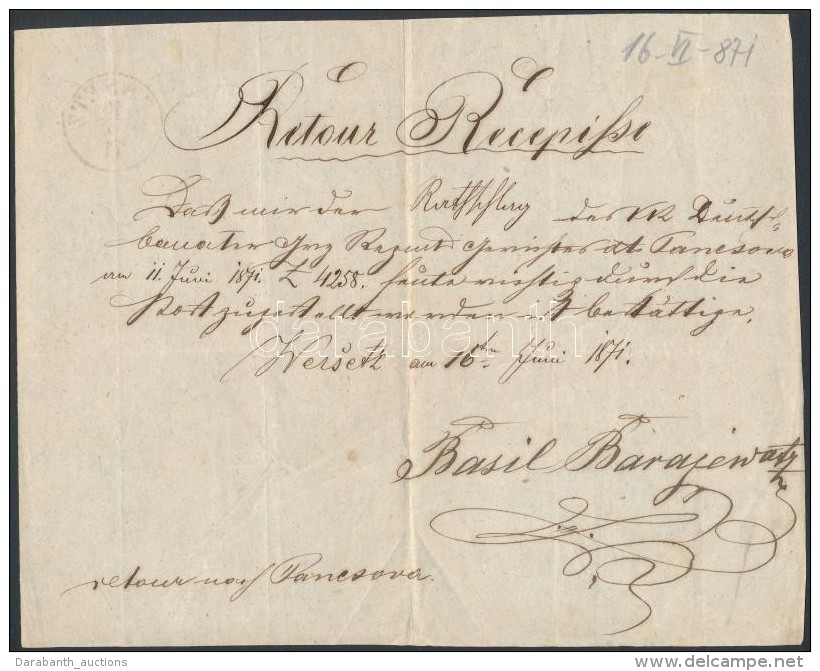 16-VI-871
Retour Recepisse
Daß mir der Rathschlag des kk Deutsch-
banater Grz Regmts Gerichtes Pancsova
am 11. Juni 1871. Z 4258. heute richtig durch die
Post zugestellt worden ist bestättige.
Werschetz am 16ten Juni 1871.
Basil Barajewatz
retour nach Pancsova.
darabanth
Darabanth_auctions
delcampe.net